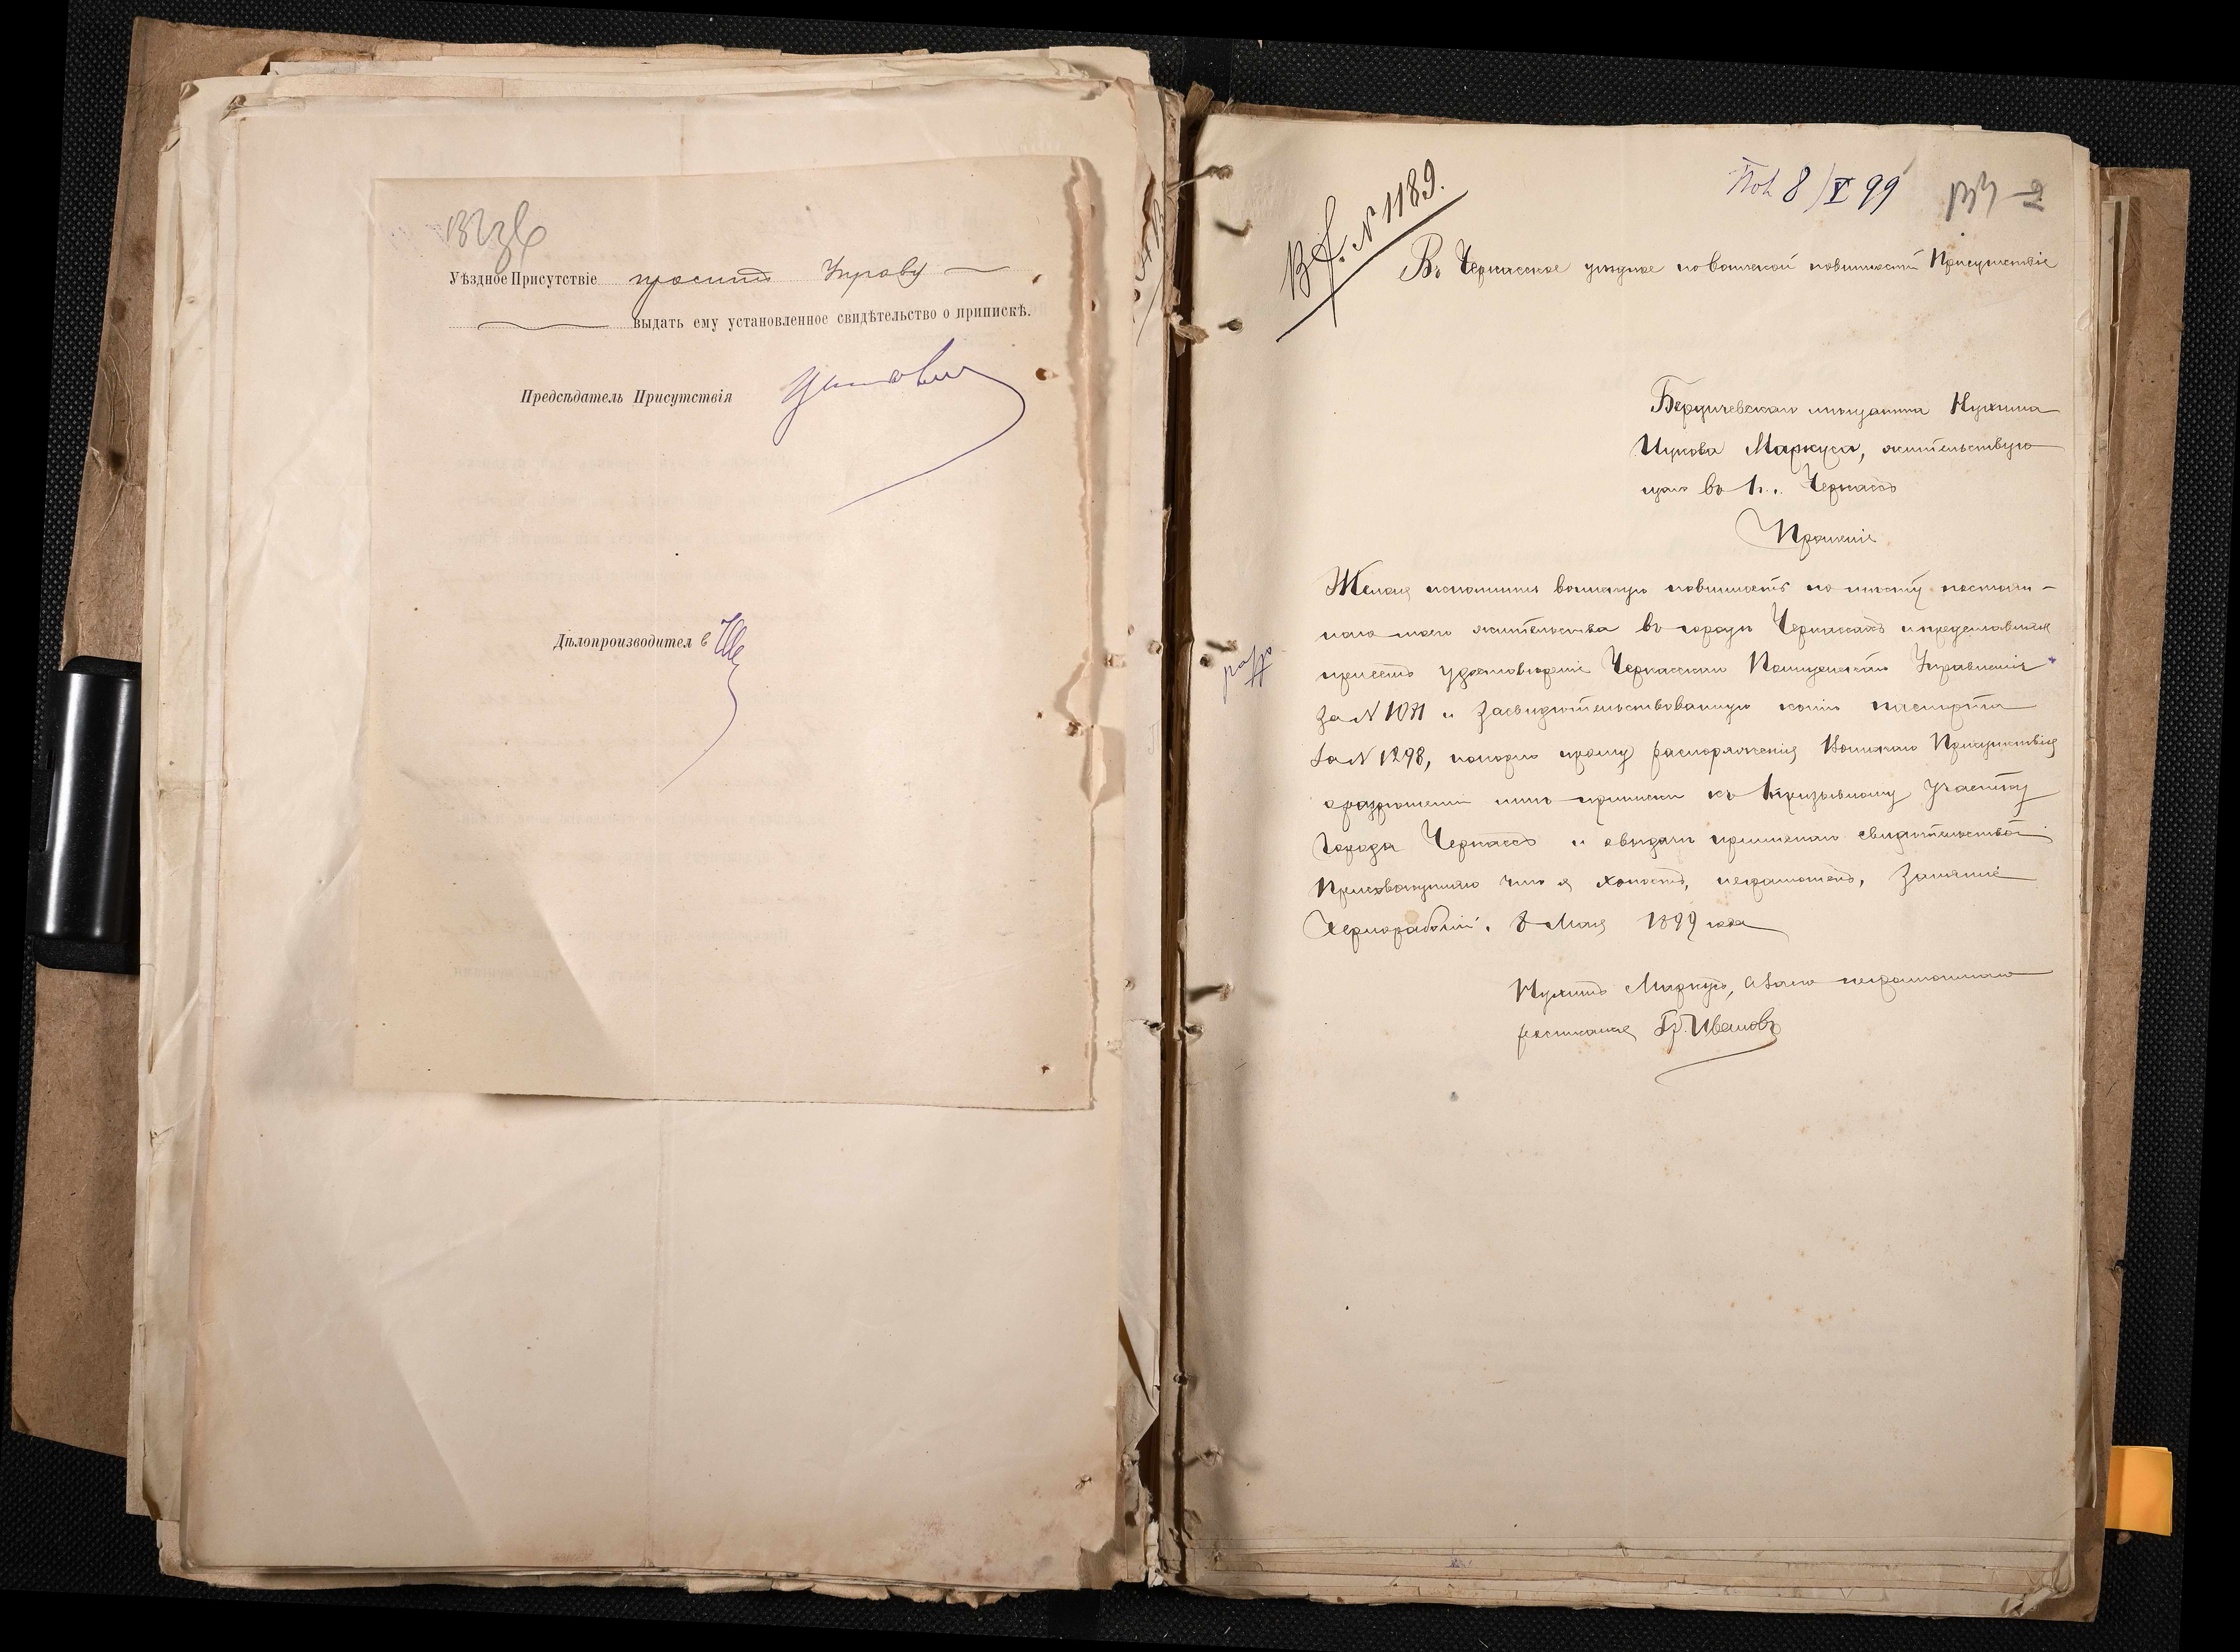 Уѣздное Присутствіе проситъ Управу
выдать ему установленное свидѣтельство о припискѣ.
Предсѣдатель Присутствія
Дѣлопроизводител ь
Вх. N 1189.
Пол 8/V 99
Въ Черкасское уѣздное по воинской повинности Присутствіе
Бердичевскаго мѣщанина Нухима
Ицкова Маркуса, жительствую
щаго въ г. Черкассы
Прошеніе
Желая исполнить воинскую повинность по мѣсту постоян-
наго моего жительства въ городѣ Черкассахъ и представляя
при семъ удостовѣреніе Черкасскаго Полицейскаго Управленія
за N 1071 и засвидѣтельствованную копію паспорта
за N 1298, покорно прошу распоряженія Воинскаго Присутствія
о разрѣшеніи мнѣ приписки къ 1 призывному участку
города Черкассъ и о выдачѣ приписнаго свидѣтельства
Присовокупляю что я холостъ, неграмотенъ, занятіе
Чернорабочій. 8 Мая 1899 года
Нухимъ Маркусъ, а за него неграмотнаго
росписался Гр. Ивановъ